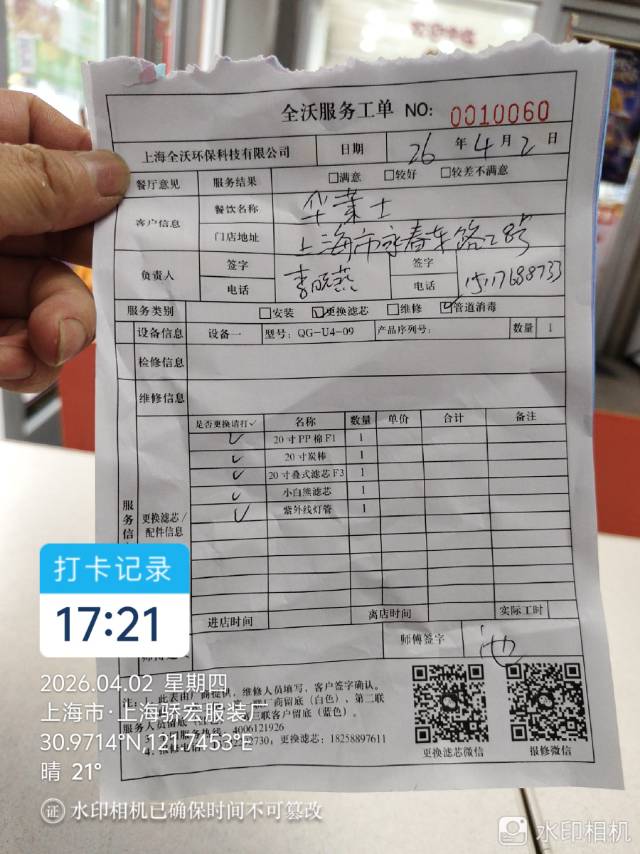 全沃服务工单 NO: 0010060
上海全沃环保科技有限公司 日期 26 年 4 月 2 日
餐厅意见 服务结果 □满意 □较好 □较差不满意
客户信息 餐饮名称 华莱士
门店地址 上海市永春东路28号
负责人 签字 李晓燕 签字
电话 电话 15117688733
服务类别 □安装 ☑更换滤芯 □维修 ☑管道消毒
设备信息 设备一 型号: QG-U4-09 产品序列号: 数量 1
检修信息
维修信息
是否更换请打✓ 名称 数量 单价 合计 备注
✓ 20寸PP棉F1 1
✓ 20寸炭棒 1
✓ 20寸叠式滤芯F3 1
✓ 小白熊滤芯 1
✓ 紫外线灯管 1
服务信
更换滤芯/
配件信息
进店时间 离店时间 实际工时
师傅签字 池
注: 1、此表由厂商提供, 维修人员填写, 客户签字确认。
厂商留底(白色), 第二联
三联客户留底(蓝色)。
服务热线: 4006121926
2730; 更换滤芯: 18258897611
更换滤芯微信 报修微信
打卡记录
17:21
2026.04.02 星期四
上海市·上海骄宏服装厂
30.9714°N,121.7453°E
晴 21°
证 水印相机已确保时间不可篡改
水印相机